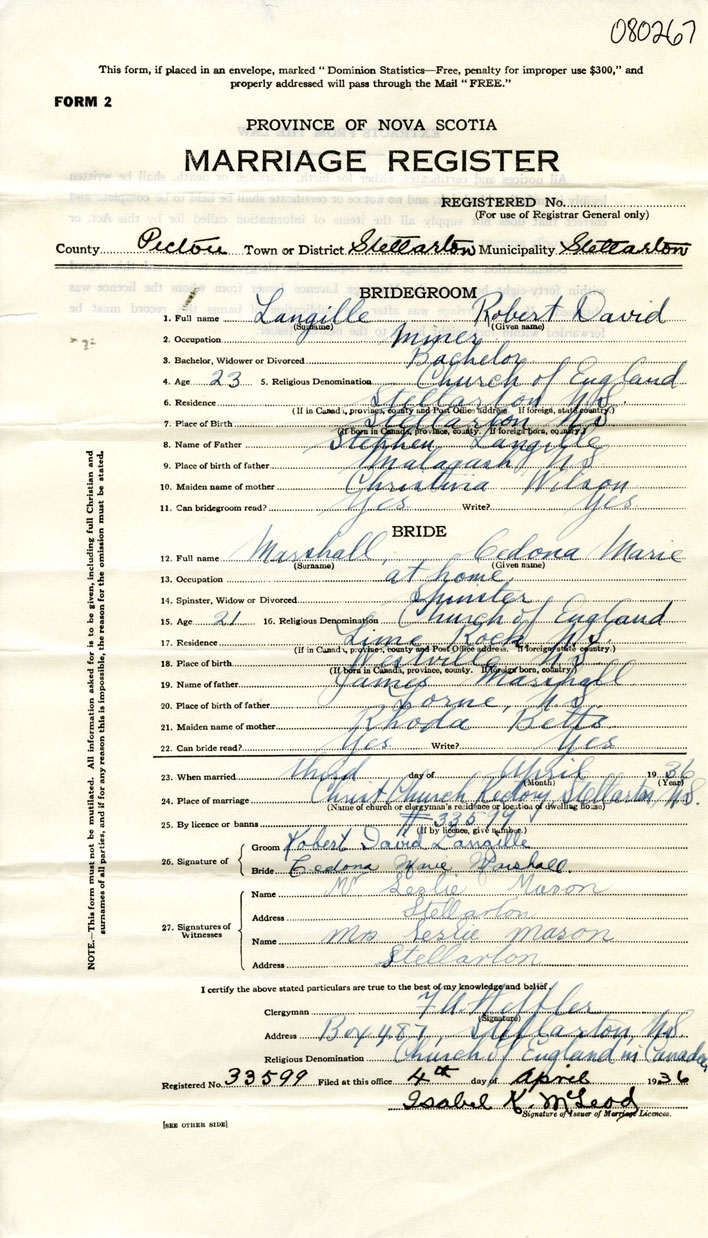 080267
This form, if placed in an envelope, marked " Dominion Statistics—Free, penalty for improper use $300," and
properly addressed will pass through the Mail " FREE."
FORM 2
PROVINCE OF NOVA SCOTIA
MARRIAGE REGISTER
REGISTERED No.
(For use of Registrar General only)
County Pictou Town or District Stellarton Municipality Stellarton
BRIDEGROOM
1. Full name Langille Robert David
(Surname) (Given name)
2. Occupation Miner
3. Bachelor, Widower or Divorced Bachelor
4. Age 23 5. Religious Denomination Church of England
6. Residence Stellarton N.S.
(If in Canada, province, county and Post Office address. If foreign, state country.)
7. Place of Birth Stellarton N.S.
(If born in Canada, province, county. If foreign born, country.)
8. Name of Father Stephen Langille
9. Place of birth of father Malagash N S
10. Maiden name of mother Christina Wilson
11. Can bridegroom read? Yes Write? Yes
BRIDE
12. Full name Marshall, Cedona Marie
(Surname) (Given name)
13. Occupation at home
14. Spinster, Widow or Divorced Spinster
15. Age 21 16. Religious Denomination Church of England
17. Residence Lime Rock N.S.
(If in Canada, province, county and Post Office address. If foreign, state country.)
18. Place of birth Westville N.S.
(If born in Canada, province, county. If foreign born, country.)
19. Name of father James Marshall
20. Place of birth of father Lorne, N.S.
21. Maiden name of mother Rhoda Betts
22. Can bride read? Yes Write? Yes
23. When married third day of April 1936
(Month) (Year)
24. Place of marriage Christ Church Rectory Stellarton N.S.
(Name of church or clergyman's residence or location of dwelling house)
25. By licence or banns # 33599
(If by licence, give number.)
26. Signature of
Groom Robert David Langille
Bride Cedona Marie Marshall.
27. Signatures of Witnesses
Name Mr Leslie Mason
Address Stellarton
Name Mrs Leslie Mason
Address Stellarton
I certify the above stated particulars are true to the best of my knowledge and belief.
Clergyman
(Signature)
Address Box 487, Stellarton N.S.
Religious Denomination Church of England in Canada
Registered No. 33599 Filed at this office 4th day of April 1936
Isabel K. McLeod
Signature of Issuer of Marriage Licences.
[SEE OTHER SIDE]
NOTE.—This form must not be mutilated. All information asked for is to be given, including full Christian and
surnames of all parties, and if for any reason this is impossible, the reason for the omission must be stated.